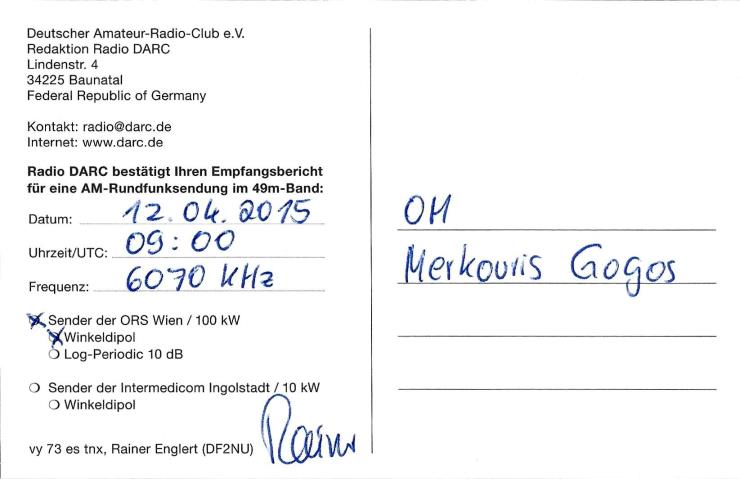 Deutscher Amateur-Radio-Club e.V.
Redaktion Radio DARC
Lindenstr. 4
34225 Baunatal
Federal Republic of Germany
Kontakt: radio@darc.de
Internet: www.darc.de
Radio DARC bestätigt Ihren Empfangsbericht
für eine AM-Rundfunksendung im 49m-Band:
Datum: 12.04.2015
Uhrzeit/UTC: 09:00
Frequenz: 6070 kHz
Sender der ORS Wien / 100 kW
Winkeldipol
Log-Periodic 10 dB
Sender der Intermedicom Ingolstadt / 10 kW
Winkeldipol
vy 73 es tnx, Rainer Englert (DF2NU) Rainer
OM
Merkouris Gogos